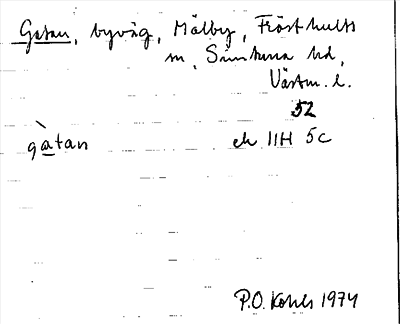 Gatan, byväg, Mälby, Frösthults
sn, Simtuna hd,
Västm. l.
52
gàtan ek 11H 5c
P.O. 1974